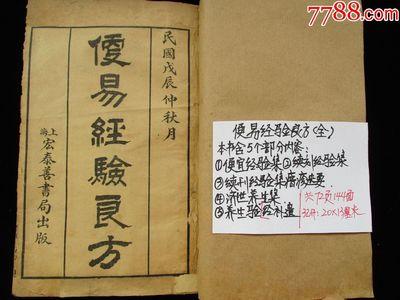 7788.com
民國戊辰仲秋月
便易經驗良方
上海宏泰善書局出版
便易经验良方(全)
本书含5个部分内容:
①便宜经验集②续刊经验集
③续刊经验集
④济世养生集
⑤养生验经补遗
共72页144面
32开:20×13厘米